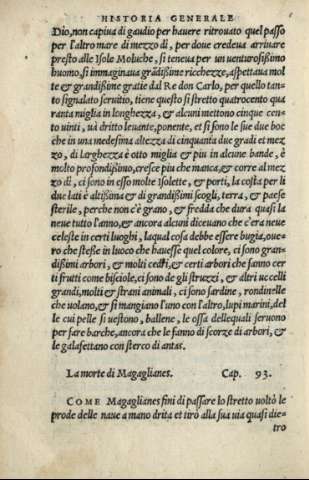 HISTORIA GENERALE
Dio, non capiua di gaudio per hauere ritrouato quel passo
per l'altro mare di mezzo dì, per doue credeua arriuare
presto alle Isole Moluche, si teneua per un uenturosißimo
huomo, si immaginaua grādißime ricchezze, aspettaua mol
te & grandißime gratie dal Re don Carlo, per quello tan-
to signalato seruitio, tiene questo si stretto quatrocento qua
ranta miglia in longhezza, & alcuni mettono cinque cen-
to uinti, uà dritto leuante, ponente, et si sono le sue due boc
che in una medesima altezza di cinquanta due gradi et mez
zo, di larghezza è otto miglia & piu in alcune bande, è
molto profondißimo, cresce piu che manca, & corre al mez
zo dì, ci sono in esso molte Isolette, & porti, la costa per li
due lati è altißima & di grandißimi scogli, terra, & paese
sterile, perche non c'è grano, & fredda che dura quasi la
neue tutto l'anno, & ancora alcuni diceuano che c'era neue
celeste in certi luoghi, laqual cosa debbe essere bugia, oue-
ro che stesse in luoco che hauesse quel colore, ci sono gran-
dißimi arbori, & molti cedri, & certi arbori che fanno cer
ti frutti come bisciole, ci sono de gli struzzi, & altri uccelli
grandi, molti & strani animali, ci sono sardine, rondinelle
che uolano, & si mangiano l'uno con l'altro, lupi marini, del
le cui pelle si uestono, ballene, le ossa dellequali seruono
per fare barche, ancora che le fanno di scorze di arbori, &
le galafettano con sterco di antas.
La morte di Magaglianes. Cap. 93.
COME Magaglianes finì di passare lo stretto uoltò le
prode delle naue a mano drita et tirò alla sua uia quasi die-
tro